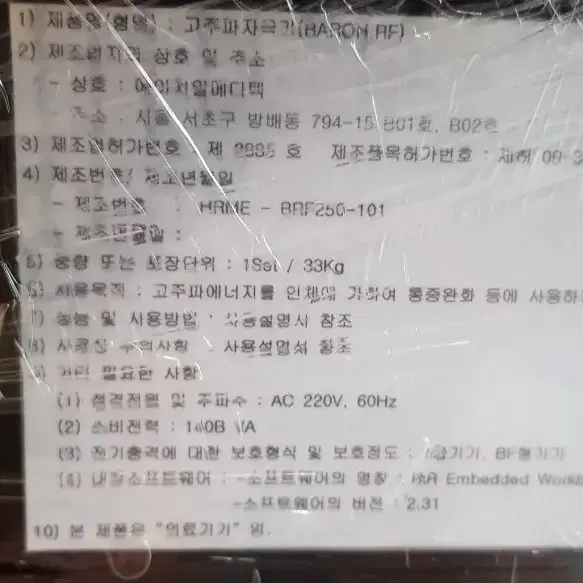 1) 제품명(형명) : 고주파자극기(BARON RF)
2) 제조업자의 상호 및 주소
- 상호 : 에이치알메디텍
- 주소 : 서울 서초구 방배동 794-15 B01호, B02호
3) 제조업허가번호 : 제 2885 호 제조품목허가번호 : 제허 00-3
4) 제조번호/ 제조년월일
- 제조번호 : HRME - BRF250-101
- 제조년월일 :
5) 중량 또는 포장단위 : 1Set / 33Kg
6) 사용목적 : 고주파에너지를 인체에 가하여 통증완화 등에 사용하
7) 성능 및 사용방법 : 사용설명서 참조
8) 사용상 주의사항 : 사용설명서 참조
9) 기타 필요한 사항
(1) 정격전원 및 주파수 : AC 220V, 60Hz
(2) 소비전력 : VA
(3) 전기충격에 대한 보호형식 및 보호정도 : 1급기기, BF형기기
(4) 내장소프트웨어 : -소프트웨어의 명칭 : IAR Embedded Workb
-소프트웨어의 버전 : 2.31
10) 본 제품은 "의료기기" 임.